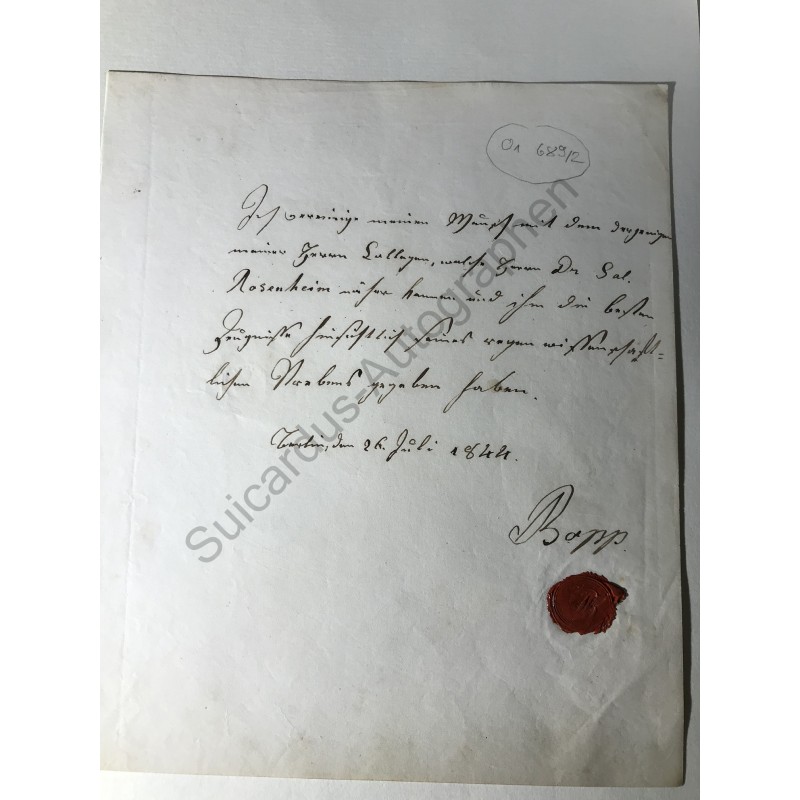 01 689/2
Ich vereinige meinen Wunsch mit dem derjenigen
meiner Herrn Collegen, welche Herrn Dr. Sal.
Rosenheim näher kennen und ihm die besten
Zeugnisse hinsichtlich seines regen wissenschaft=
lichen Strebens gegeben haben.
Berlin, den 26. Juli 1844.
Bopp.
Suicardus-Autographen